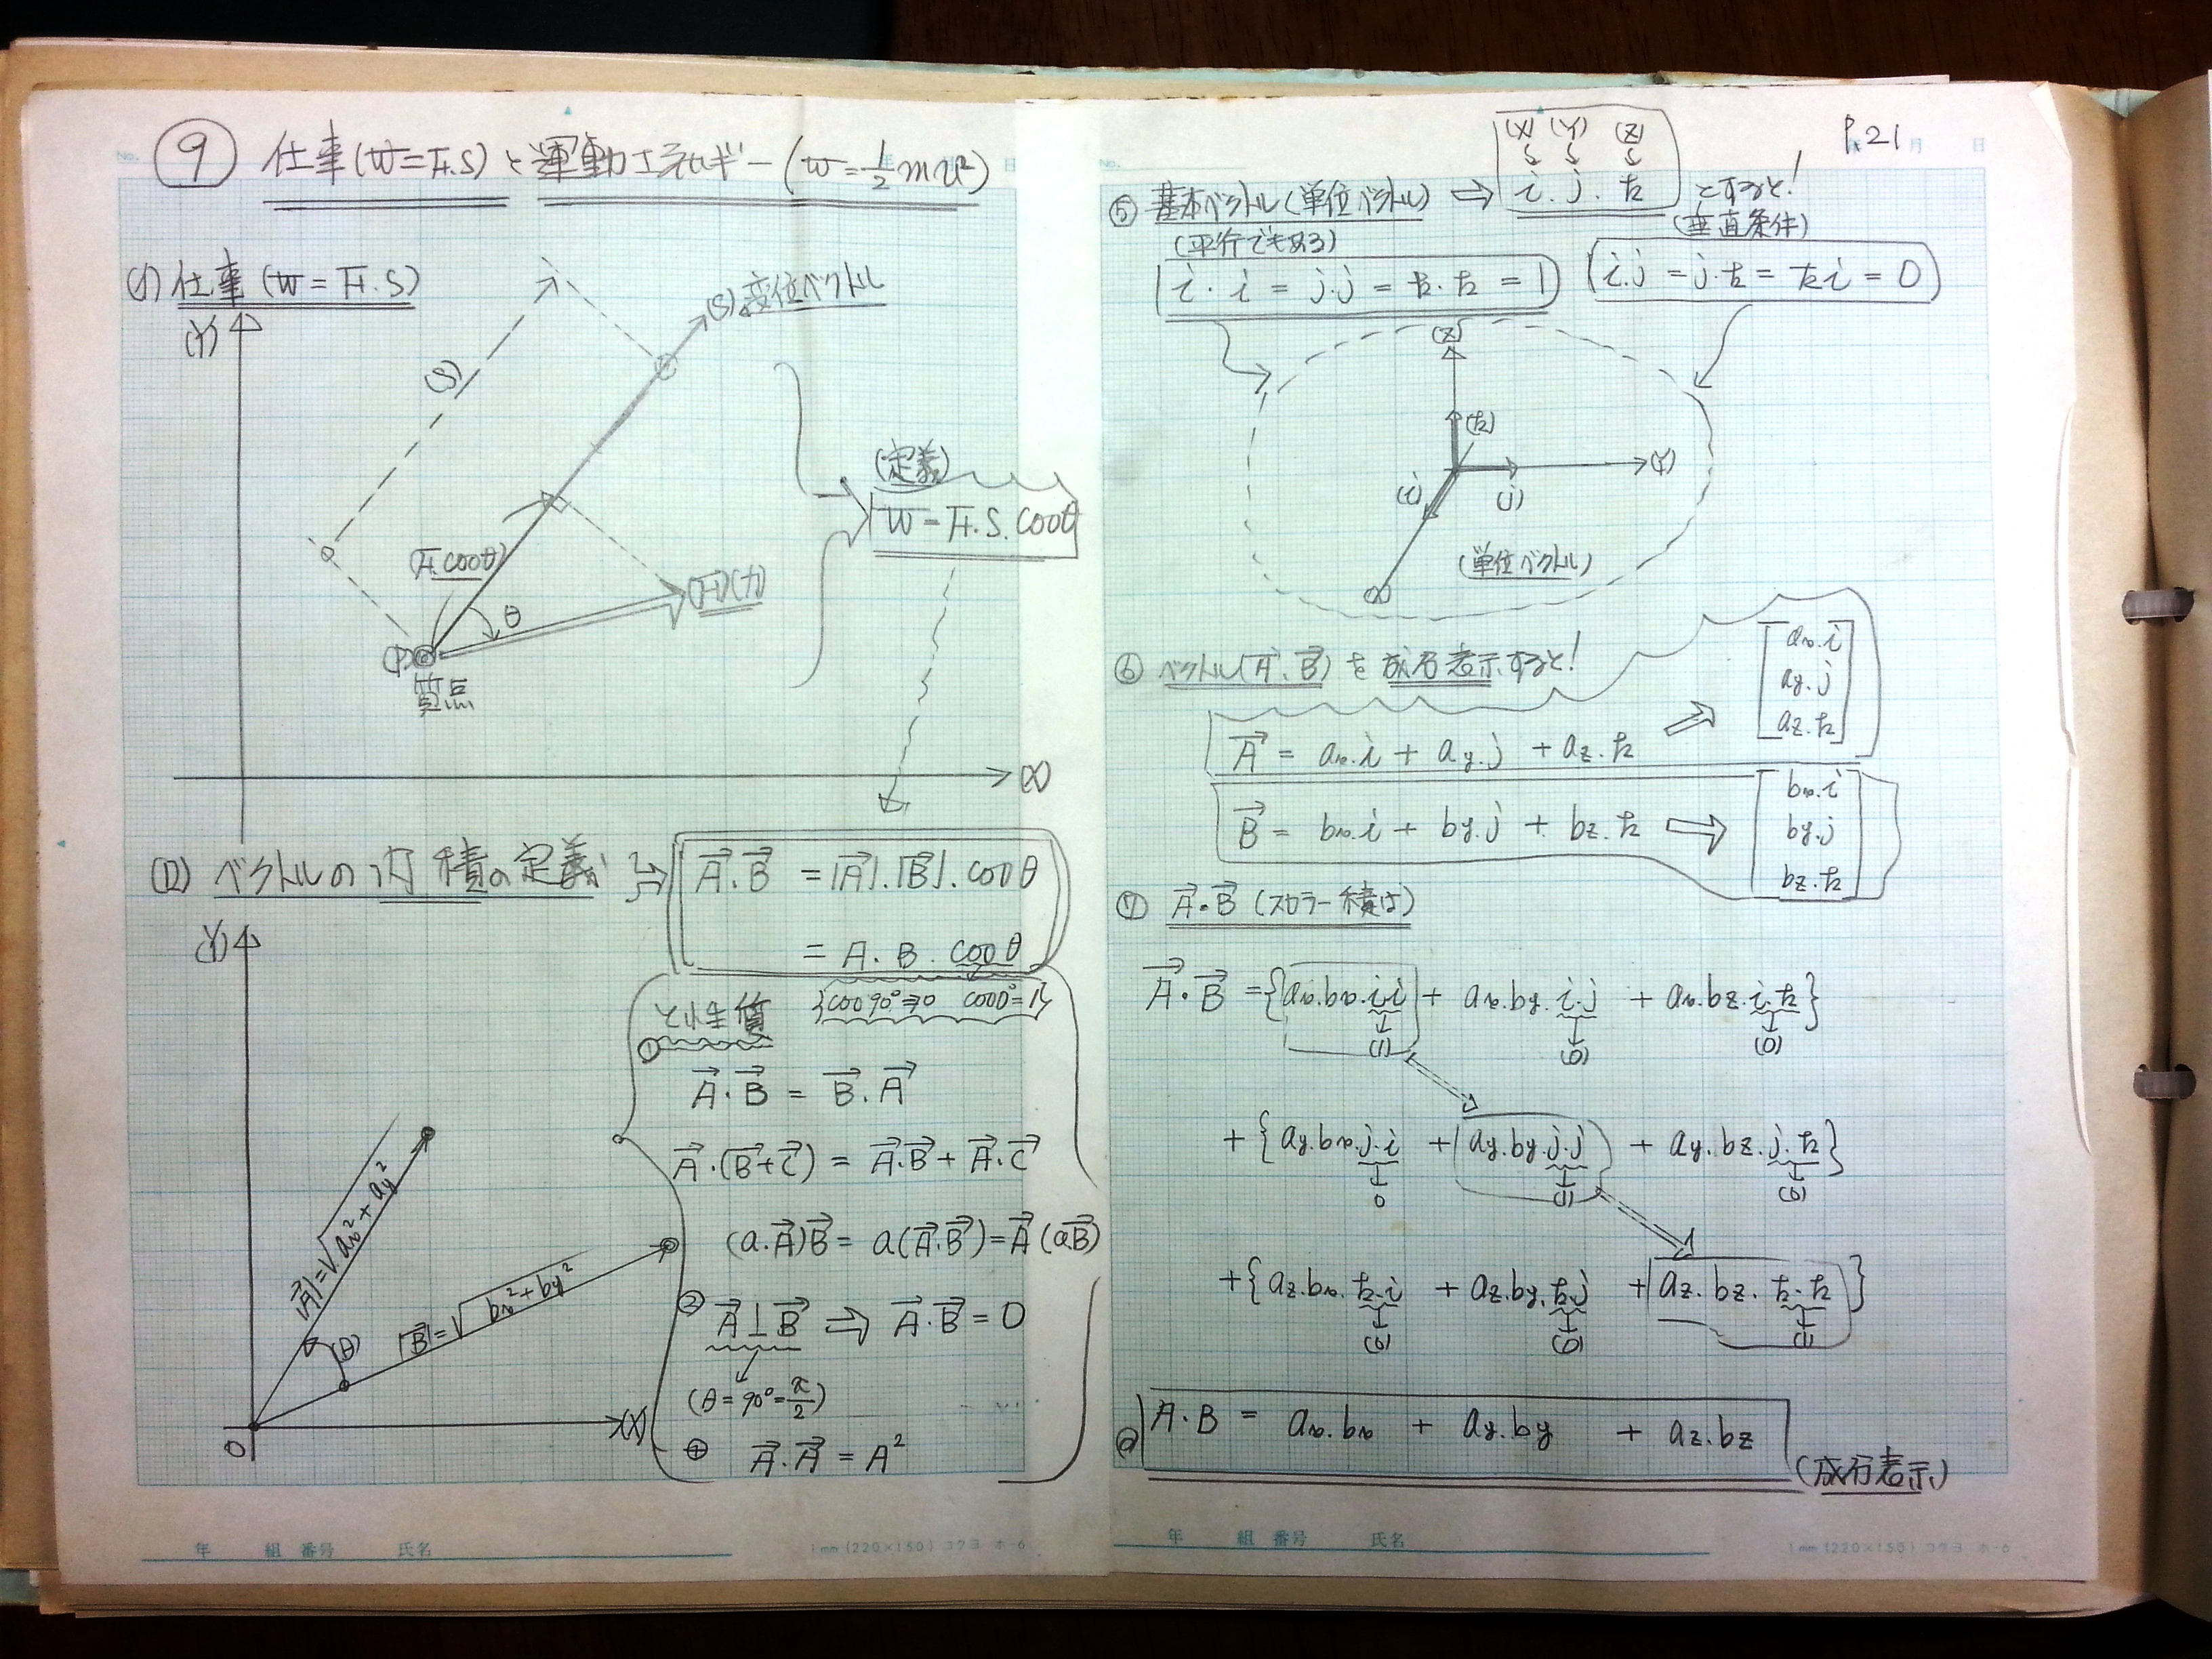 ⑨ 仕事(W=F.S)と運動エネルギー(W=1/2 mv²)
(イ) 仕事 (W=F.S)
(Y)
(S) 変位ベクトル
(S)
(定義)
W=F.S.cosθ
(F.cosθ)
θ
(F)(力)
(P)
質点
(X)
(ロ) ベクトルの内積の定義
A・B = |A|.|B|.cosθ
= A.B.cosθ
{cos90°⇒0 cos0°=1}
と性質
①
A・B = B.A
A・(B+C) = A.B+A.C
(a.A)B = a(A.B)=A(aB)
② A⊥B ⇒ A.B=0
(θ=90°=π/2)
④ A.A=A²
(Y)
|A|=√ax²+ay²
|B|=√bx²+by²
(θ)
0
(X)
P.21
(X) (Y) (Z)
⑤ 基本ベクトル(単位ベクトル) ⇒ i.j.k とすると!
(平行でもある)
(垂直条件)
i.i=j.j=k.k=1
i.j=j.k=k.i=0
(Z)
(k)
(Y)
(i)
(j)
(単位ベクトル)
(X)
⑥ ベクトル(A.B)を成分表示すると!
A = ax.i + ay.j + az.k ⇒
ax.i
ay.j
az.k
B = bx.i + by.j + bz.k ⇒
bx.i
by.j
bz.k
⑦ A・B (スカラー積は)
A・B ={ax.bx.i.i + ax.by.i.j + ax.bz.i.k}
(1) (0) (0)
+{ay.bx.j.i + ay.by.j.j + ay.bz.j.k}
0 (1) (0)
+{az.bx.k.i + az.by.k.j + az.bz.k.k}
(0) (0) (1)
A・B = ax.bx + ay.by + az.bz
(成分表示)
年 組 番号 氏名
1mm(220×150) コクヨ ホ-6
年 組 番号 氏名
1mm(220×150) コクヨ ホ-6